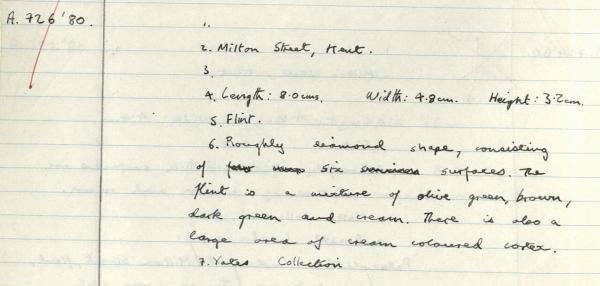 A. 726'80.
1.
2. Milton Street, Kent.
3.
4. Length: 8.0cms. Width: 4.8cm. Height: 3.2cm.
5. Flint.
6. Roughly diamond shape, consisting
of six surfaces. The
flint is a mixture of olive green, brown,
dark green and cream. There is also a
large area of cream coloured cortex.
7. Yates Collection